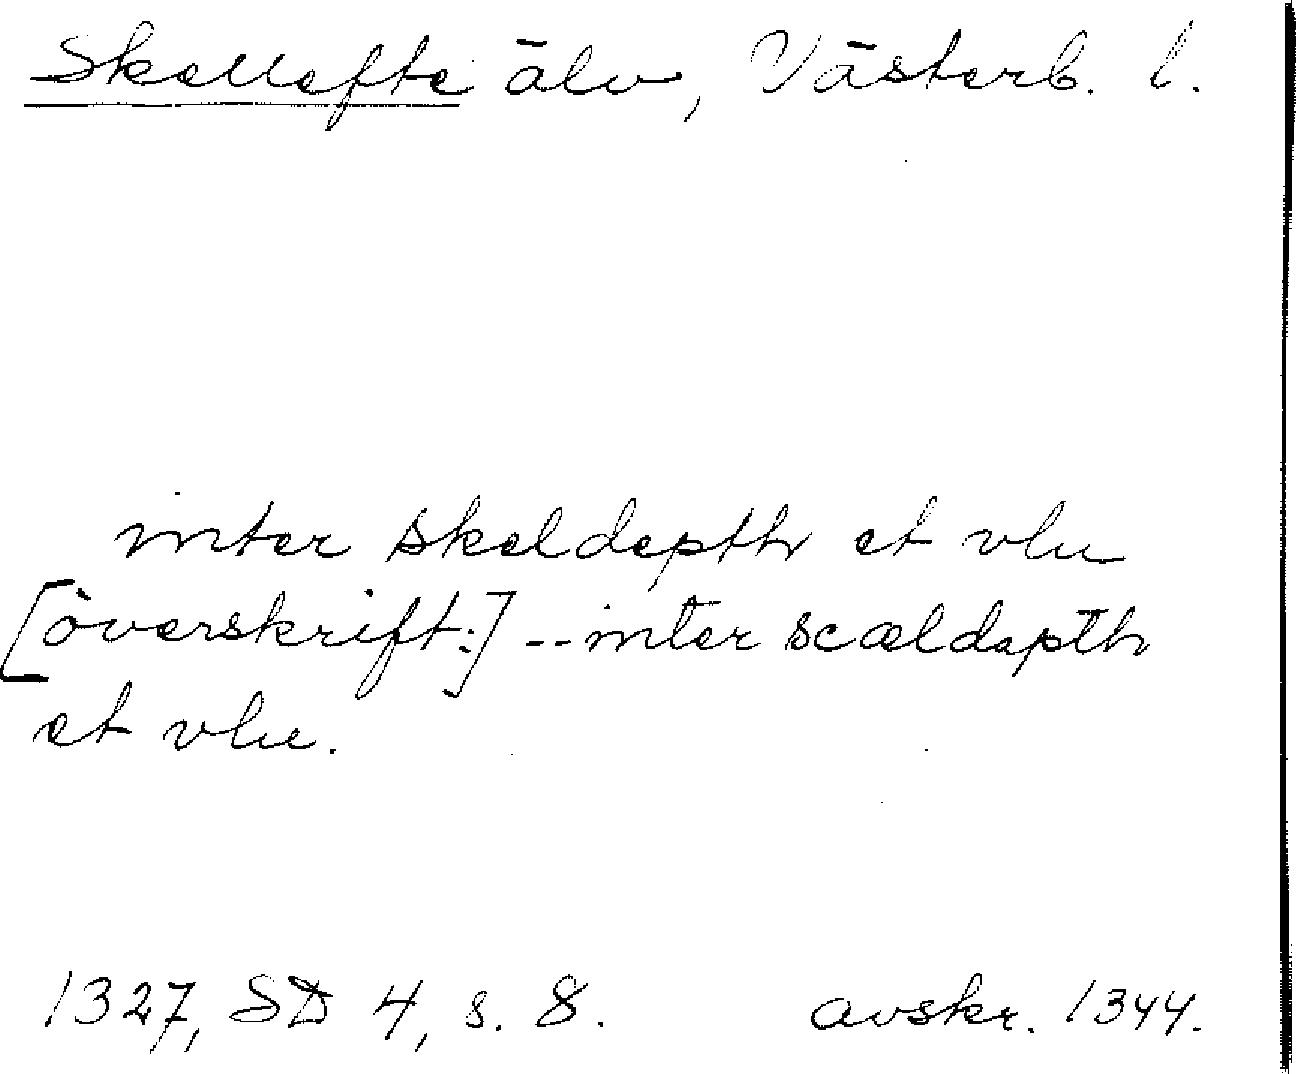 Skellefte älv, Västerb. l.
inter skeldepth et vlu
[överskrift:] -- inter scældepth
et vlu.
1327, SD 4, s. 8. avskr. 1344.